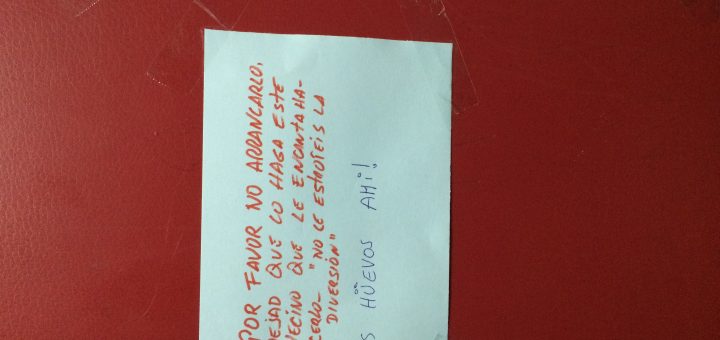 POR FAVOR NO ARRANCARLO.
DEJAD QUE LO HAGA ESTE
VECINO QUE LE ENCANTA HA-
CERLO- "NO LE ESTROPEIS LA
DIVERSIÓN"
HÜEVOS AHI!